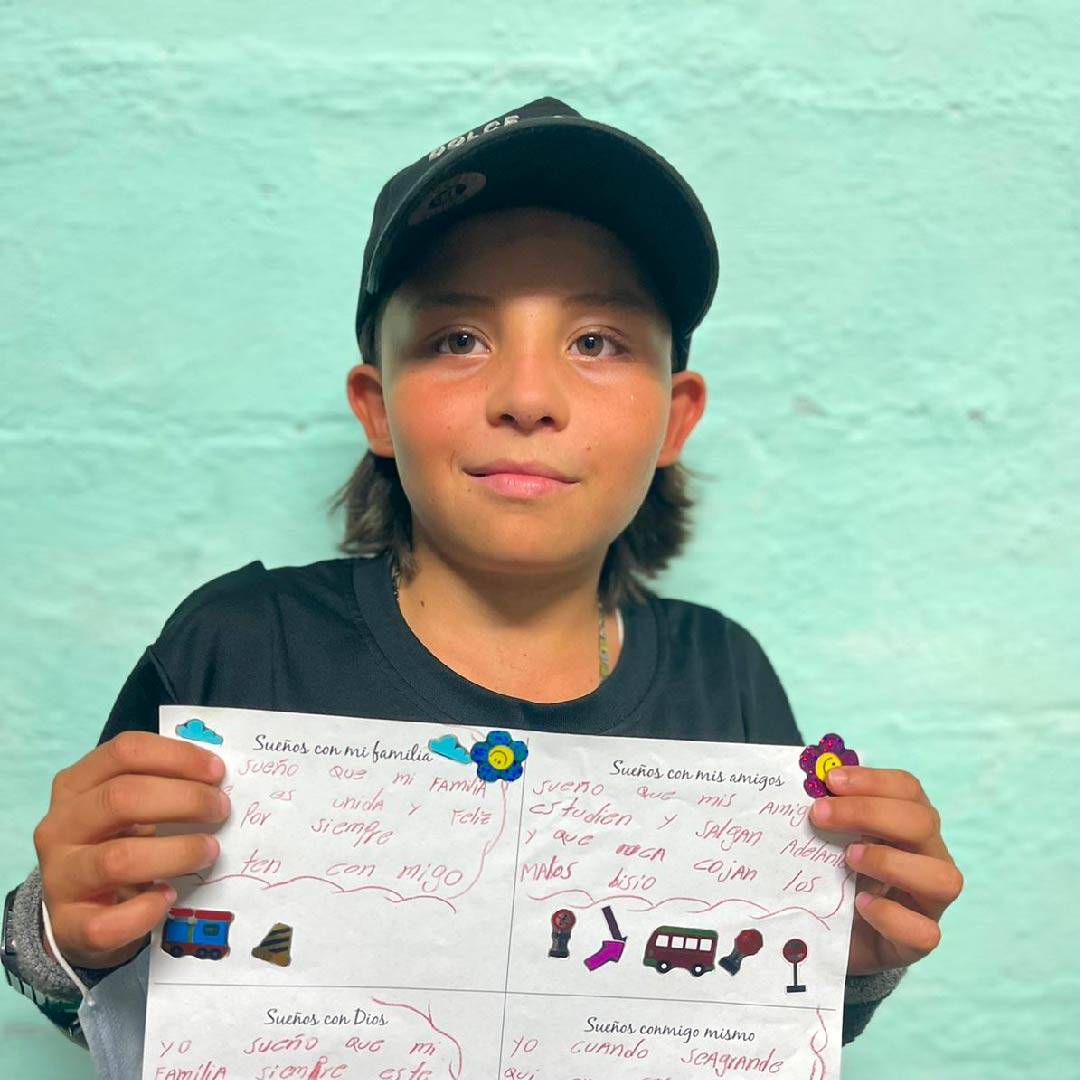 DOLCE
Sueños con mi familia
sueño que mi FAMILIA
es unida y Feliz
Por siempre
ten con migo
Sueños con mis amigos
sueño que mis Amig
estudien y SALGAN Adelant
y que nuca cojan los
MALos bisio
Sueños con Dios
yo sueño que mi
FAMILIA siempre este
Sueños conmigo mismo
yo cuando seAgrande
qui